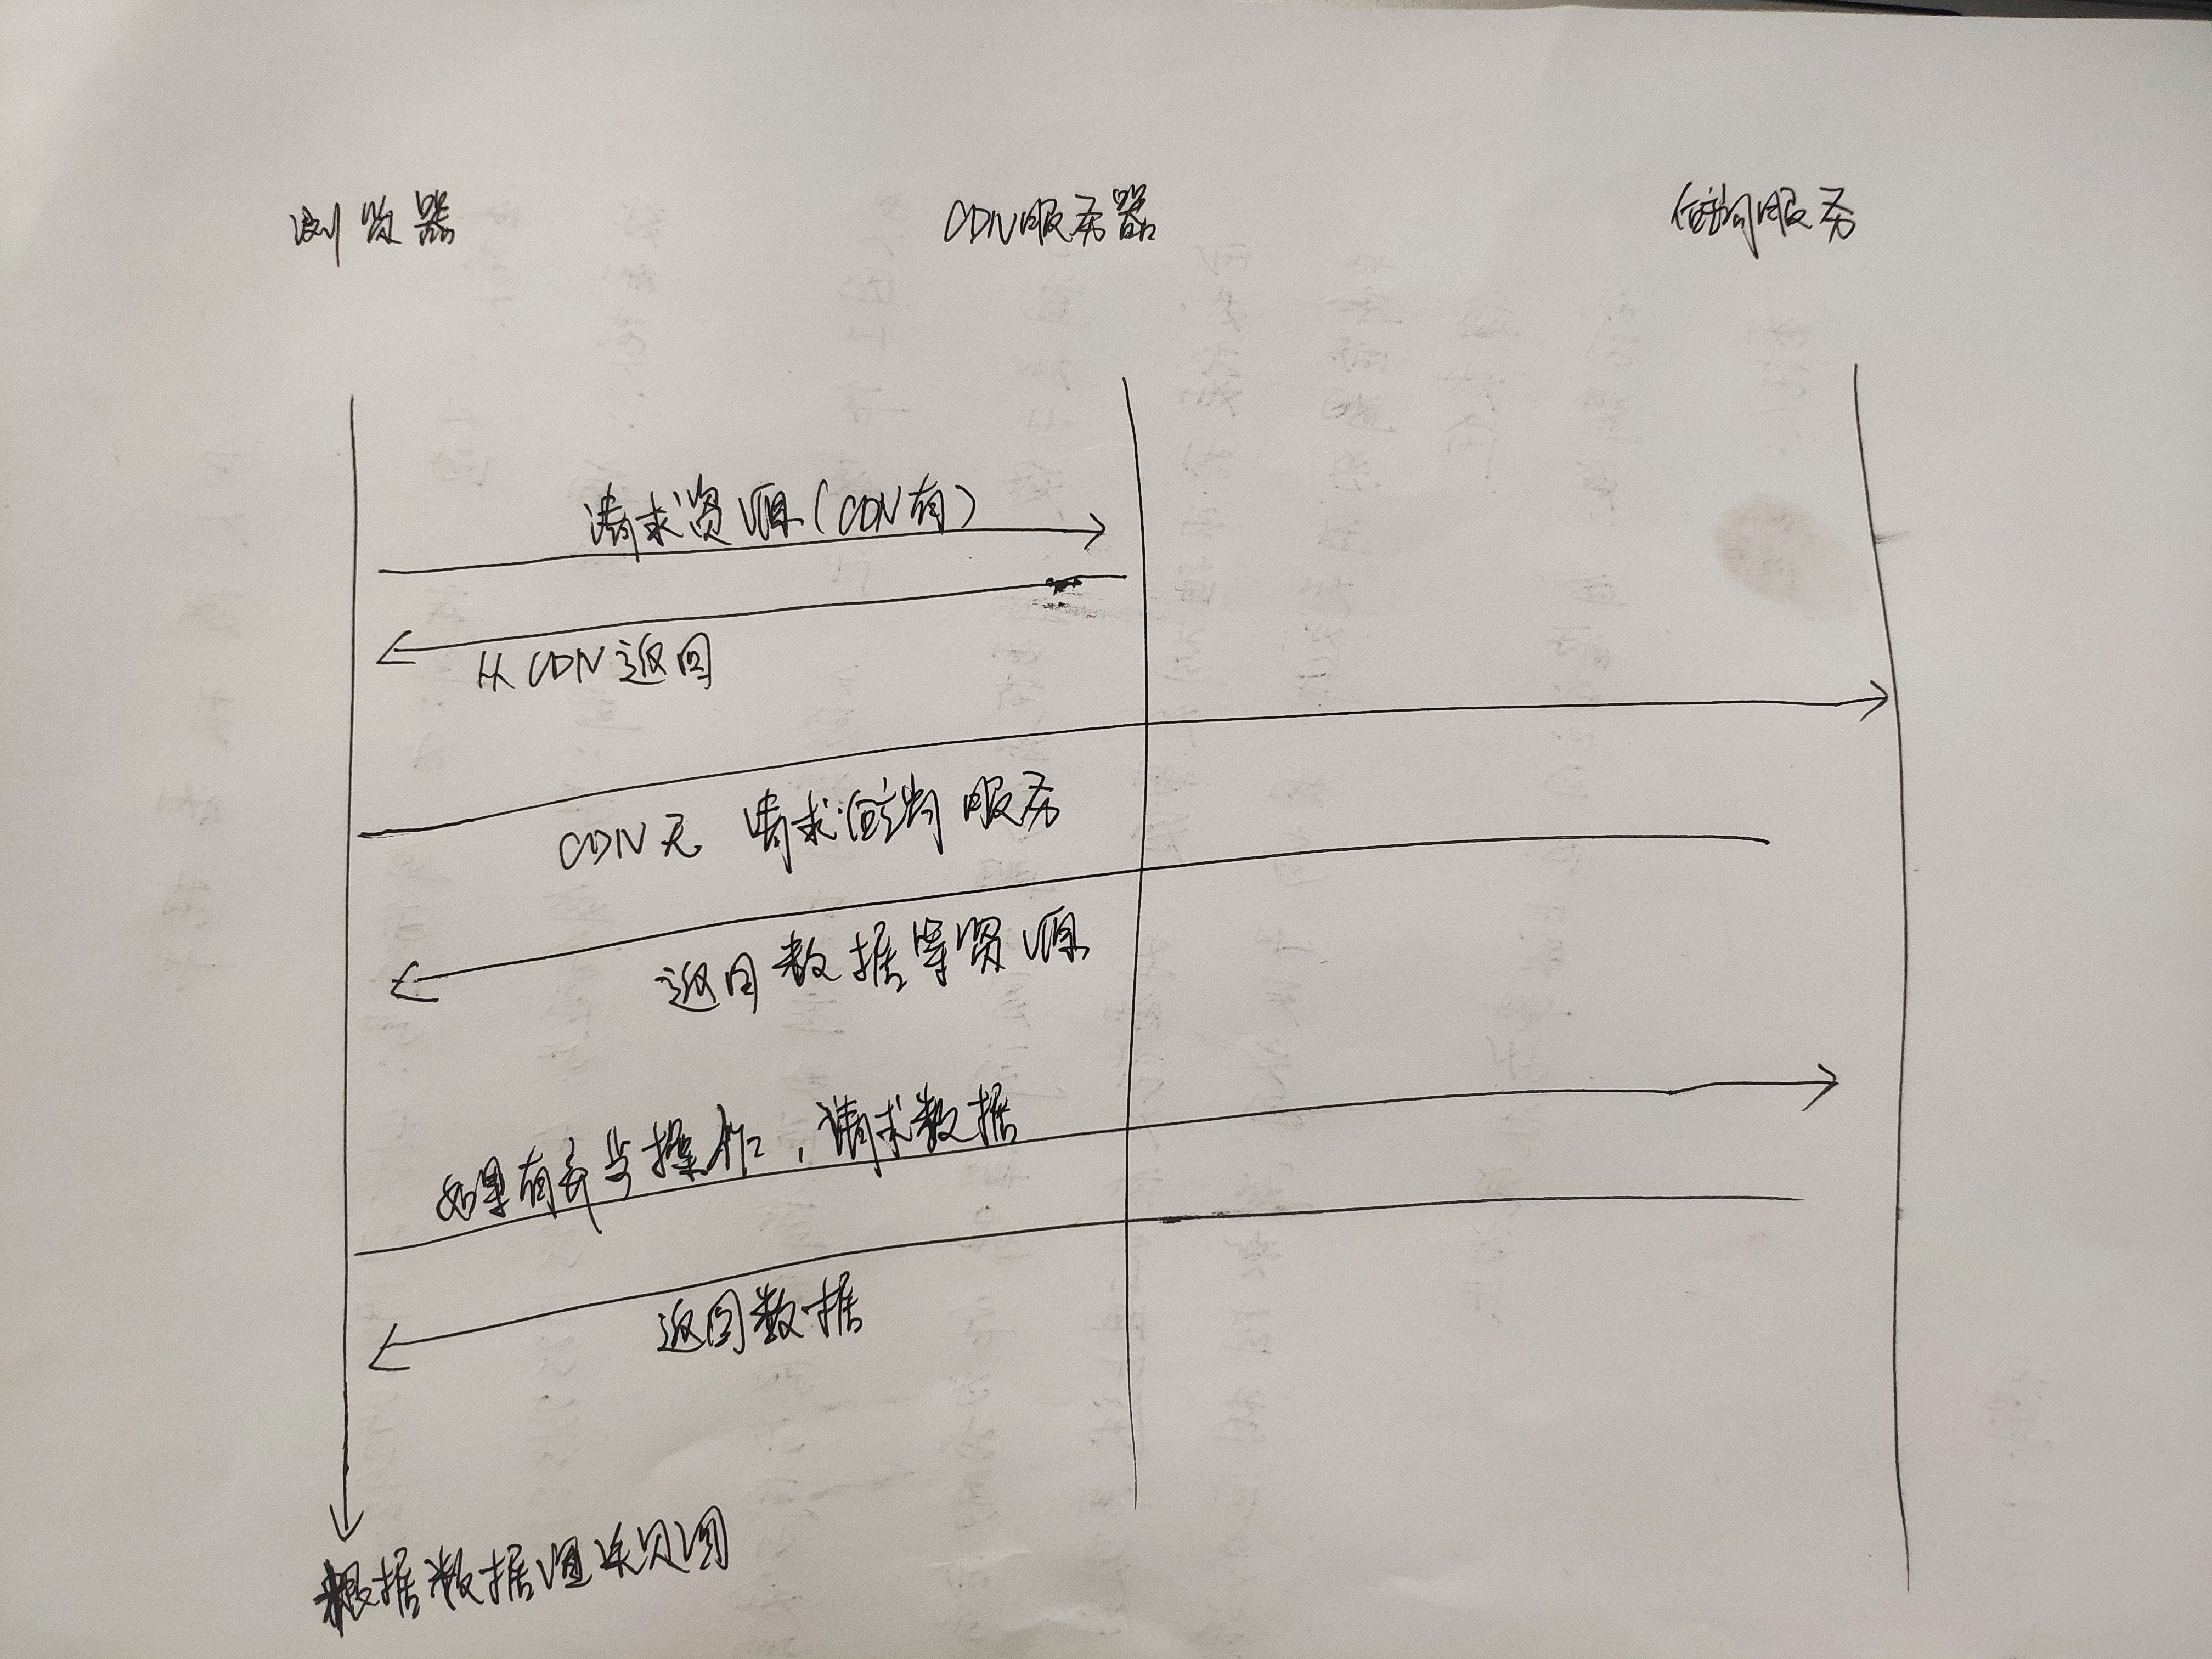 浏览器
CDN服务器
后端服务
请求资源(CDN有)
从CDN返回
CDN无 请求后端服务
返回数据等资源
如果有异步操作,请求数据
返回数据
根据数据渲染页面